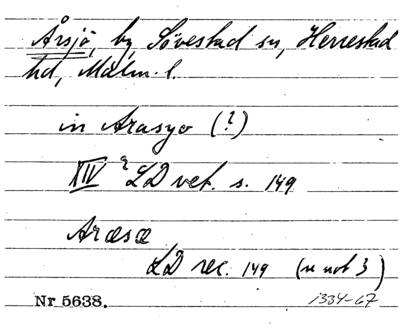 Årsjö, by, Sövestad sn, Herrestad
hd, Malm. l.
in Arasyo (?)
XIV 2 LD vet. s. 149
Aræsæ
LD rec. 149 (n not 3)
Nr 5638.
1334-67